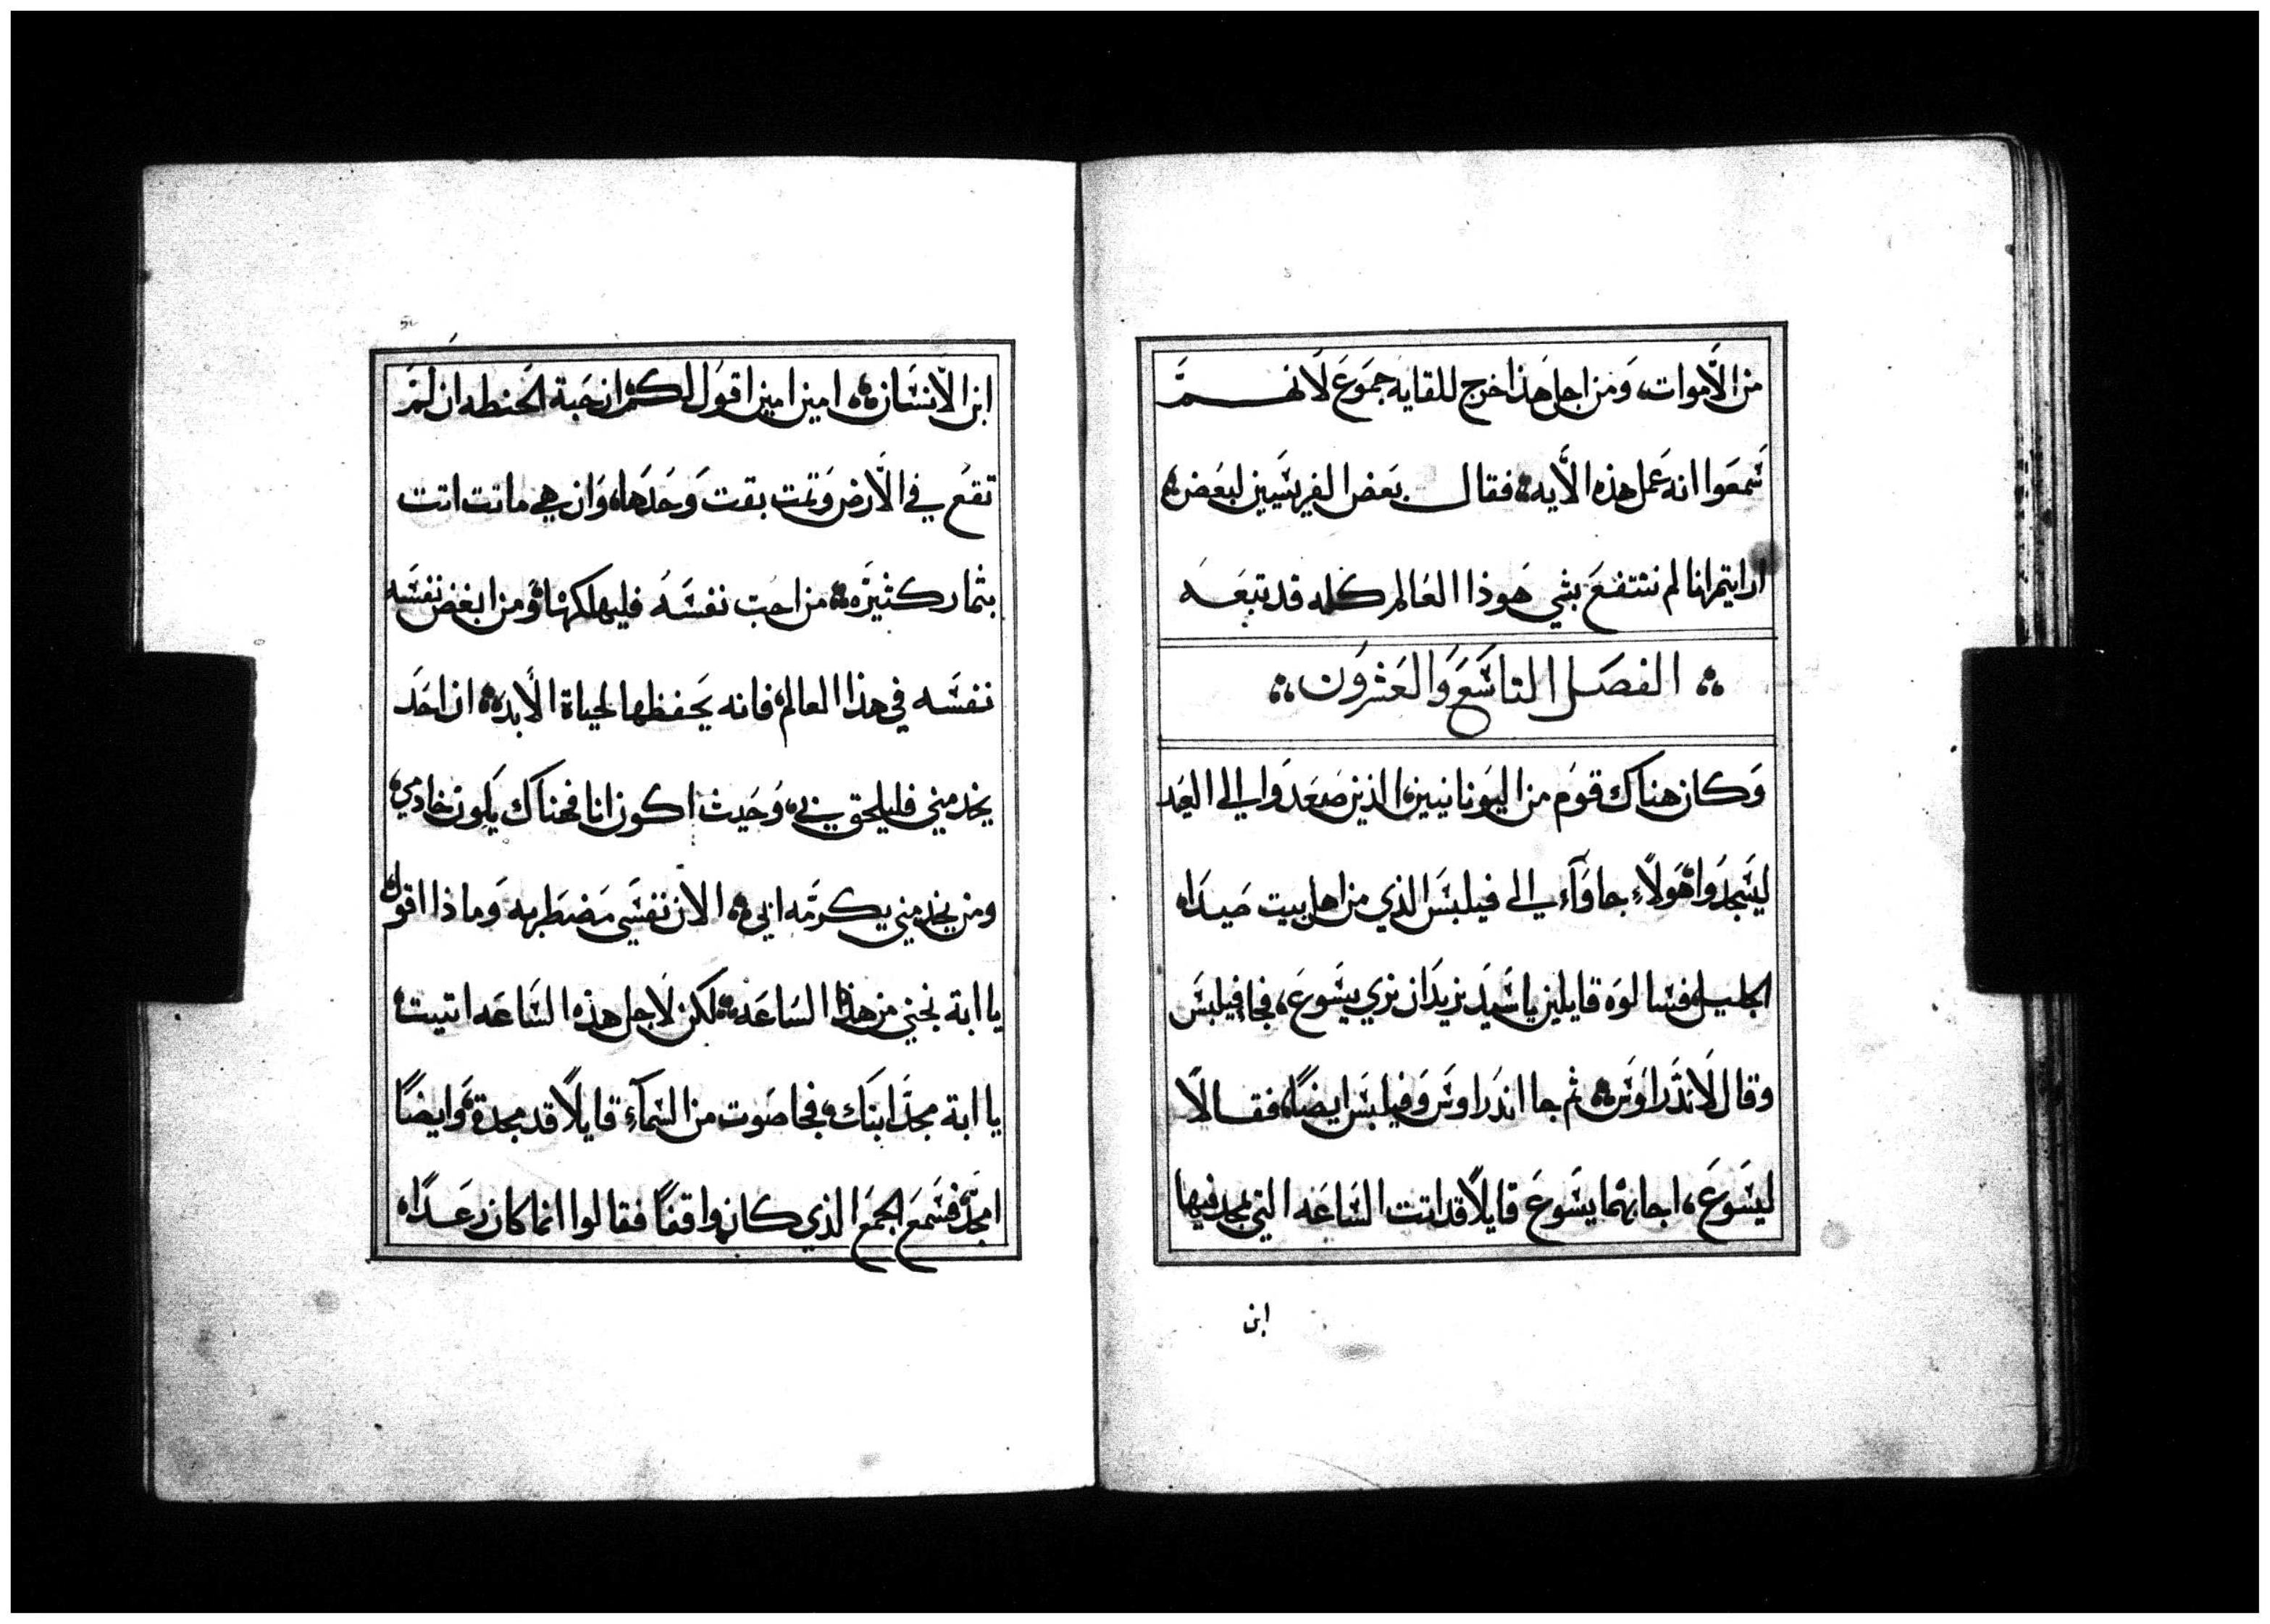 من الاموات، ومن اجل هذا خرج للقايه جموع لانهم
سمعوا انه عمل هذه الايه فقال بعض الفريسيين لبعض
ارايتم اننا لم ننتفع بشي هوذا العالم كله قد تبعه
الفصل التاسع والعشرون
وكان هناك قوم من اليونانيين، الذين صعدوا الي العيد
ليسجدوا هولاء جاوآء الي فيلبس الذي من اهل بيت صيدا
الجليل فسالوه قايلين ياسيد نريد ان نري يسوع، فجا فيلبس
وقال لاندراوس ثم جا اندراوس وفيلبس ايضًا فقالا
ليسوع، اجابهما يسوع قايلًا قد اتت الساعه التي يمجد فيها
ابن
ابن الانسان امين امين اقول لكم ان حبة الحنطه ان لم
تقع في الارض وتمت بقت وحدها، وان هي ماتت اتت
بثمار كثيره من احب نفسه فليهلكها ومن ابغض نفسه
نفسه في هذا العالم فانه يحفظها لحياة الابد ان احد
يخدمني فليلحق بي، وحيث اكون انا فهناك يكون خادمي
ومن يخدمني يكرمه ابي الان نفسي مضطربه وماذا اقول
يا ابة نجني من هذه الساعه لكن لاجل هذه الساعه اتيت
يا ابة مجد ابنك فجا صوت من السمآء قايلًا قد مجدة وايضًا
امجد فسمع الجمع الذي كان واقفًا فقالوا انما كان رعدًا